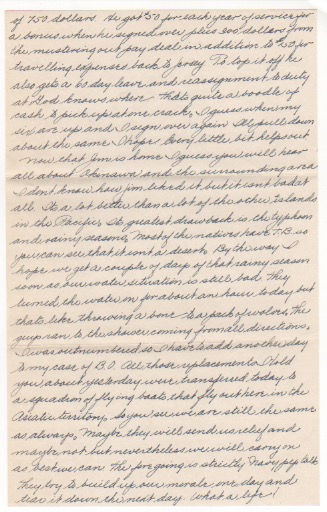 of 750 dollars. He got $50 for each year of service for
a bonus when he signed over plus 300 dollars from
the mustering out pay deal in addition to $50 for
travelling expenses back to Joisy. To top it off he
also gets a 60 day leave and reassignment to duty
at God knows where. Thats quite a boodle of
cash to pick up at one crack. I guess when my
six are up and I sign over again I'll pull down
about the same I hope. Every little bit helps out
Now that Jim is home I guess you will hear
all about Okinawa and the surrounding area
I dont know how Jim liked it but it isnt bad at
all. Its a lot better than a lot of the other Islands
in the Pacific. Its greatest drawback is the typhoon
and rainy seasons. Most of the natives have T.B. so
you can see that it isnt a desert. By the way I
hope we get a couple of days of that rainy season
soon as our water situation is still bad. They
turned the water on for about an hour today but
thats like throwing a bone to a pack of wolves. The
guys ran to the shower coming from all directions.
I was outnumbered so I have to add another day
to my case of B.O. All those replacements I told
you about yesterday were transferred today to
a squadron of flying boats that fly out here in the
Asiatic territory. So you see we are still the same
as always. Maybe they will send us relief and
maybe not but nevertheless we will carry on
as best we can. The foregoing is strictly Navy pep talk
They try to build up our morale one day and
tear it down the next day. What a life!